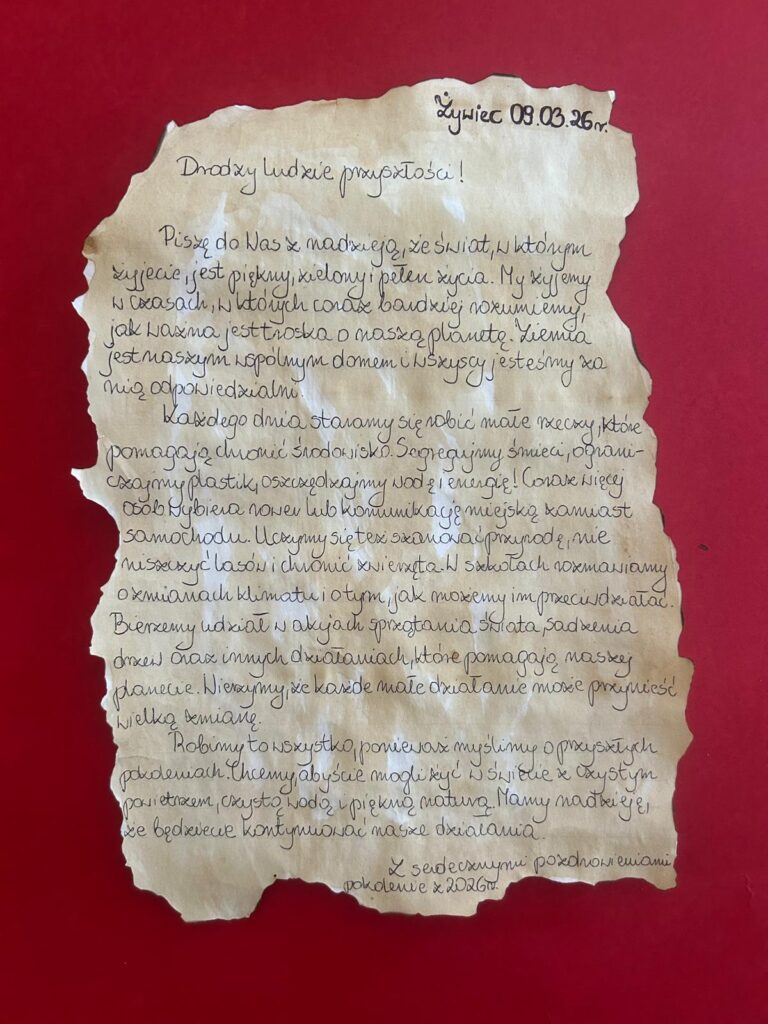 Żywiec 09.03.26r.
Drodzy ludzie przyszłości!
Piszę do Was z nadzieją, że świat, w którym
żyjecie, jest piękny, zielony i pełen życia. My żyjemy
w czasach, w których coraz bardziej rozumiemy,
jak ważna jest troska o naszą planetę. Ziemia
jest naszym wspólnym domem i wszyscy jesteśmy za
nią odpowiedzialni.
Każdego dnia staramy się robić małe rzeczy, które
pomagają chronić środowisko. Segregujmy śmieci, ograni-
czajmy plastik, oszczędzajmy wodę i energię! Coraz więcej
osób wybiera rower lub komunikację miejską zamiast
samochodu. Uczymy się też szanować przyrodę, nie
niszczyć lasów i chronić zwierzęta. W szkołach rozmawiamy
o zmianach klimatu i o tym, jak możemy im przeciwdziałać.
Bierzemy udział w akcjach sprzątania świata, sadzenia
drzew oraz innych działaniach, które pomagają naszej
planecie. Wierzymy, że każde małe działanie może przynieść
wielką zmianę.
Robimy to wszystko, ponieważ myślimy o przyszłych
pokoleniach. Chcemy, abyście mogli żyć w świecie z czystym
powietrzem, czystą wodą i piękną naturą. Mamy nadzieję,
że będziecie kontynuować nasze działania.
Z serdecznymi pozdrowieniami
pokolenie z 2026r.